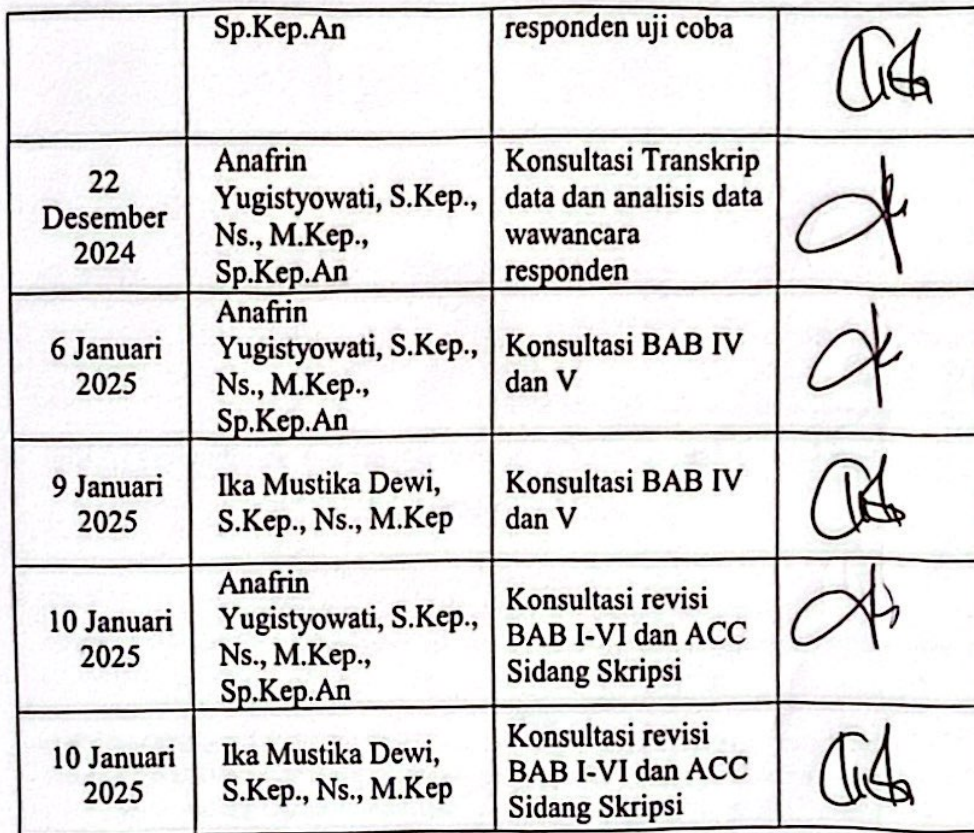 Sp.Kep.An
responden uji coba
22
Desember
2024
Anafrin
Yugistyowati, S.Kep.,
Ns., M.Kep.,
Sp.Kep.An
Konsultasi Transkrip
data dan analisis data
wawancara
responden
6 Januari
2025
Anafrin
Yugistyowati, S.Kep.,
Ns., M.Kep.,
Sp.Kep.An
Konsultasi BAB IV
dan V
9 Januari
2025
Ika Mustika Dewi,
S.Kep., Ns., M.Kep
Konsultasi BAB IV
dan V
10 Januari
2025
Anafrin
Yugistyowati, S.Kep.,
Ns., M.Kep.,
Sp.Kep.An
Konsultasi revisi
BAB I-VI dan ACC
Sidang Skripsi
10 Januari
2025
Ika Mustika Dewi,
S.Kep., Ns., M.Kep
Konsultasi revisi
BAB I-VI dan ACC
Sidang Skripsi